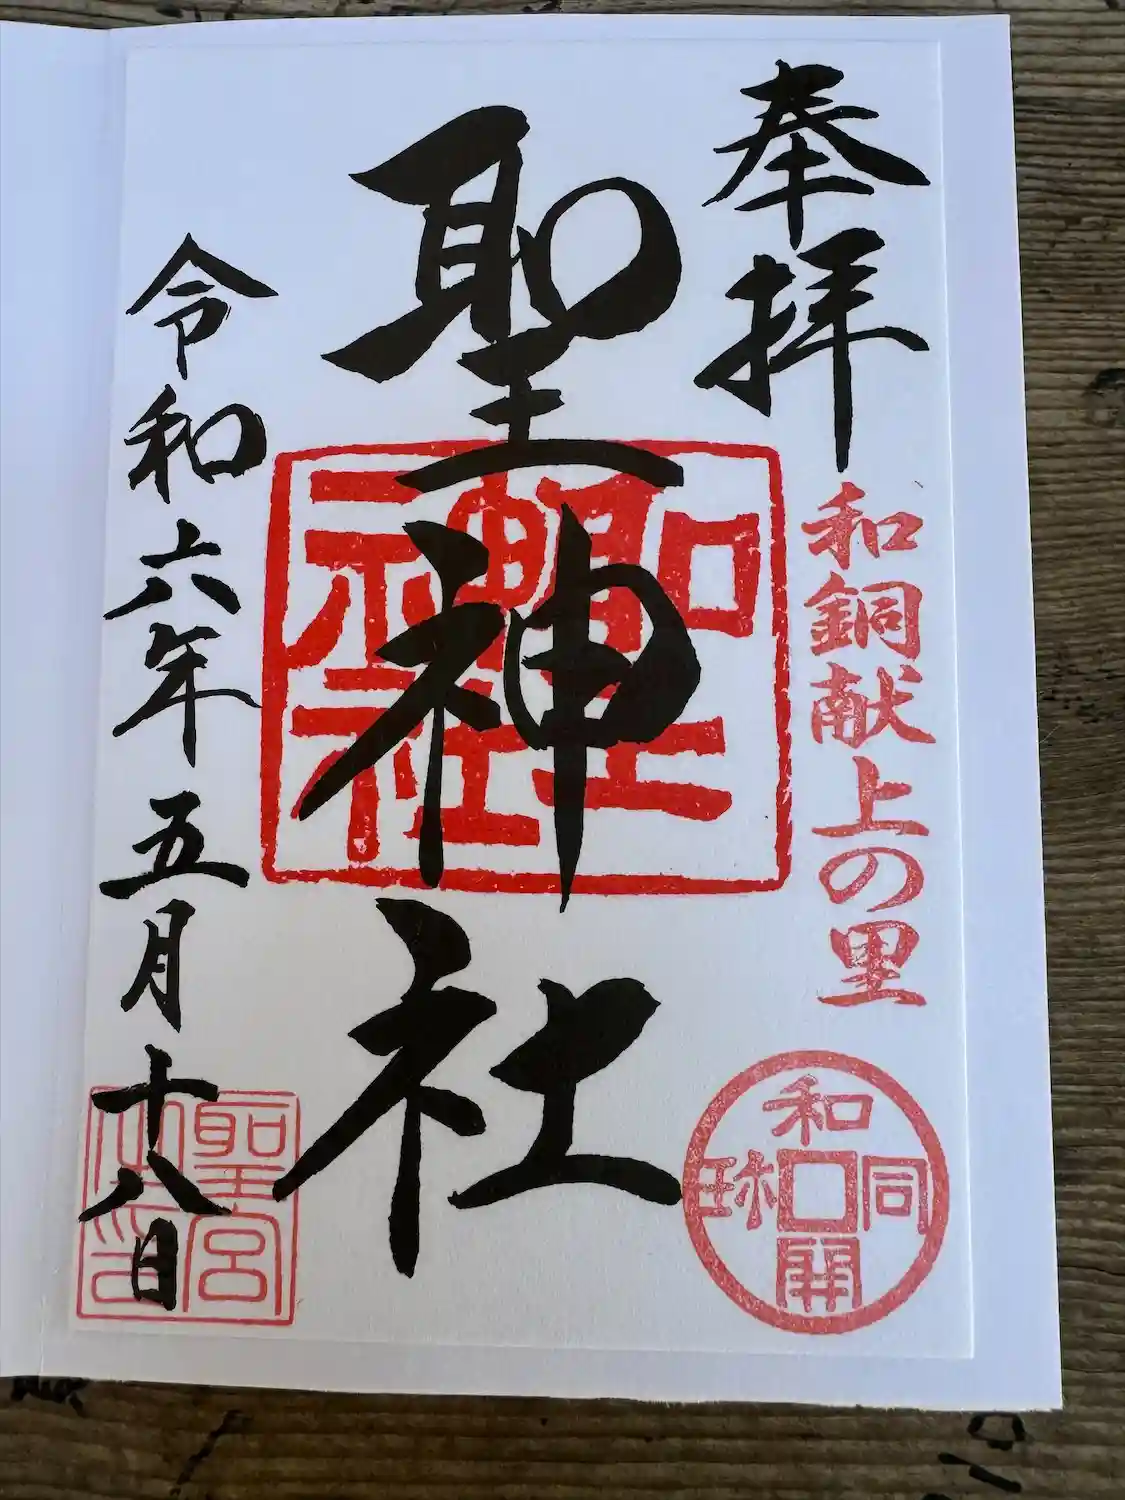 奉拝
和銅献上の里
和同開珎
聖神社
聖神社
令和六年五月十八日
聖宮